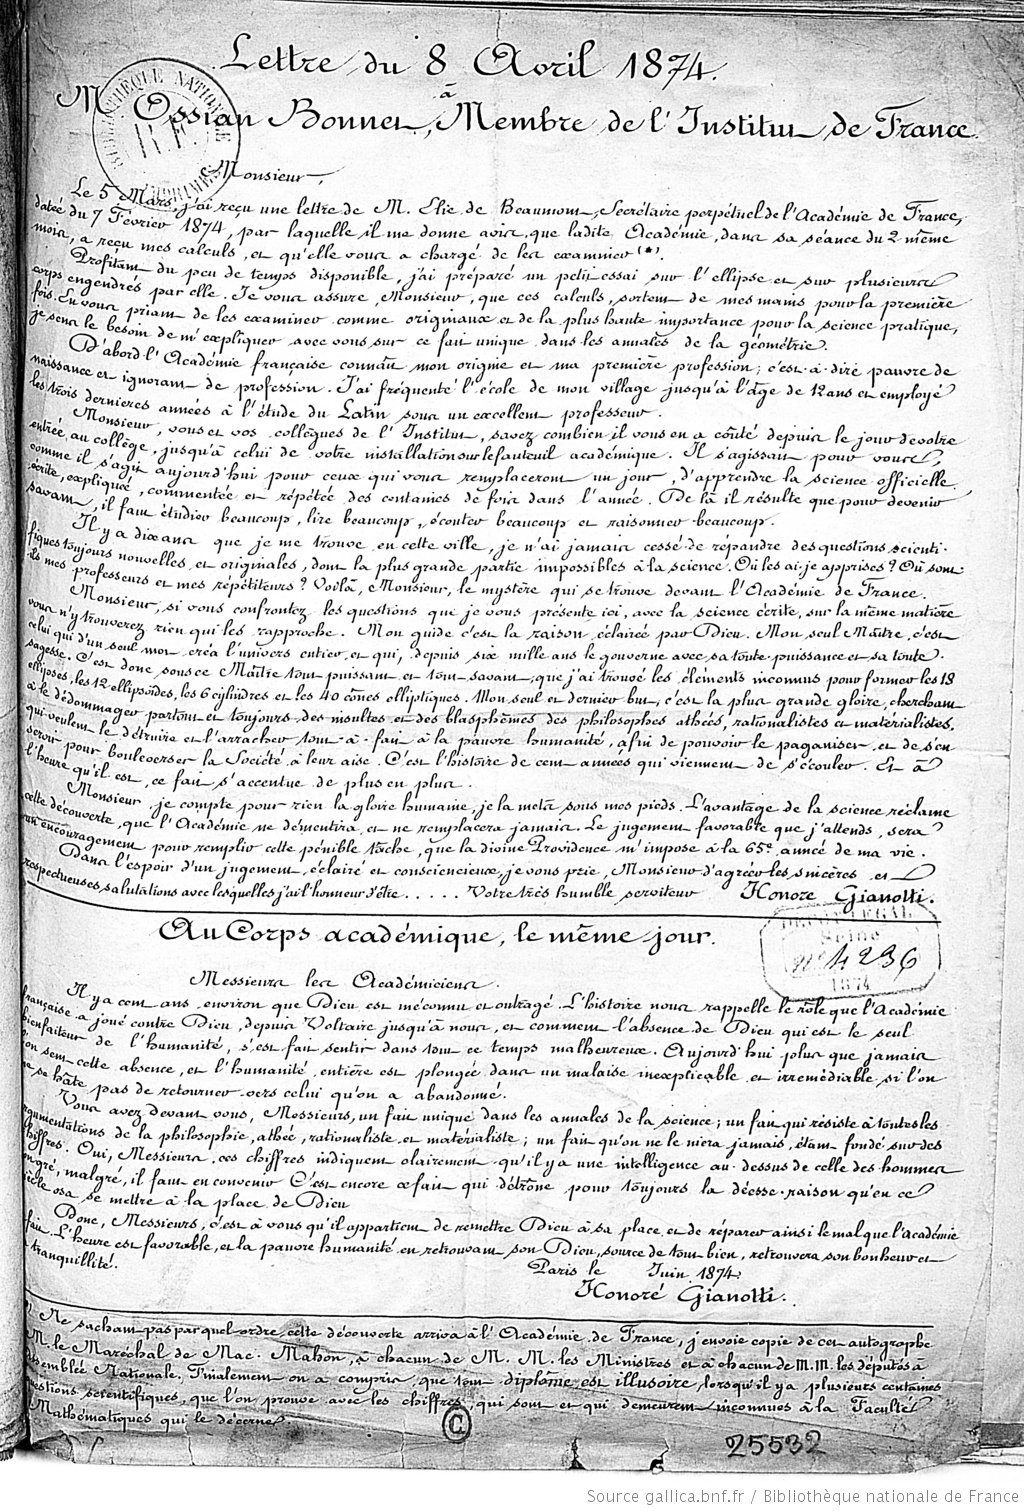 Lettre du 8 Avril 1874.
à
M Ossian Bonnet, Membre de l'Institut de France
BIBLIOTHÈQUE NATIONALE
R.F.
IMPRIMÉS
Monsieur,
Le 5 Mars, j'ai reçu une lettre de M. Elie de Beaumont, Secrétaire perpétuel de l'Académie de France,
datée du 7 Février 1874, par laquelle il me donne avis, que ladite Académie, dans sa séance du 2 même
mois, a reçu mes calculs, et qu'elle vous a chargé de les examiner (*).
Profitant du peu de temps disponible, j'ai préparé un petit essai sur l'ellipse et sur plusieurs
corps engendrés par elle. Je vous assure, Monsieur, que ces calculs, sortent de mes mains pour la première
fois. En vous priant de les examiner comme originaux et de la plus haute importance pour la science pratique,
je sens le besoin de m'expliquer avec vous sur ce fait unique dans les annales de la géométrie.
D'abord l'Académie française connaît mon origine et ma première profession; c'est-à-dire pauvre de
naissance et ignorant de profession. J'ai fréquenté l'école de mon village jusqu'à l'âge de 12 ans et employé
les trois dernières années à l'étude du Latin sous un excellent professeur.
Monsieur, vous et vos collègues de l'Institut, savez combien il vous en a coûté depuis le jour de votre
entrée au collège, jusqu'à celui de votre installation sur le fauteuil académique. Il s'agissait pour vous,
comme il s'agit aujourd'hui pour ceux qui vous remplaceront un jour, d'apprendre la science officielle.
écrite, expliquée, commentée et répétée des centaines de fois dans l'année. De là il résulte que pour devenir
savant, il faut étudier beaucoup, lire beaucoup, écouter beaucoup et raisonner beaucoup.
Il y a dix ans que je me trouve en cette ville, je n'ai jamais cessé de répandre des questions scienti-
fiques toujours nouvelles et originales, dont la plus grande partie impossibles à la science. Où les ai-je apprises? Où sont-
ils mes professeurs et mes répétiteurs? Voilà, Monsieur, le mystère qui se trouve devant l'Académie de France.
Monsieur, si vous confrontez les questions que je vous présente ici, avec la science écrite, sur la même matière
vous n'y trouverez rien qui les rapproche. Mon guide c'est la raison, éclairée par Dieu. Mon seul Maître, c'est
celui qui d'un seul mot, créa l'univers entier et qui, depuis six mille ans le gouverne avec sa toute puissance et sa toute-
sagesse. C'est donc sous ce Maître tout puissant et tout savant, que j'ai trouvé les éléments inconnus pour former les 18
ellipses, les 12 ellipsoïdes, les 6 cylindres et les 40 cônes elliptiques. Mon seul et dernier but, c'est la plus grande gloire, cherchant
à le dédommager partout et toujours des insultes et des blasphèmes des philosophes athées, rationalistes et matérialistes,
qui veulent le détruire et l'arracher tout-à-fait à la pauvre humanité, afin de pouvoir le paganiser et de s'en
servir pour bouleverser la Société à leur aise. C'est l'histoire de cent années qui viennent de s'écouler. Et à
l'heure qu'il est, ce fait s'accentue de plus en plus.
Monsieur, je compte pour rien la gloire humaine, je la mets sous mes pieds. L'avantage de la science réclame
cette découverte, que l'Académie ne démentira et ne remplacera jamais. Le jugement favorable que j'attends, sera
un encouragement pour remplir cette pénible tâche, que la divine Providence m'impose à la 65e année de ma vie.
Dans l'espoir d'un jugement, éclairé et consciencieux, je vous prie, Monsieur d'agréer les sincères et
respectueuses salutations avec lesquelles j'ai l'honneur d'être..... Votre très humble serviteur Honoré Gianotti.
DÉPÔT LÉGAL
Seine
n° 4236
1874
Au Corps académique, le même jour.
Messieurs les Académiciens.
Il y a cent ans environ que Dieu est méconnu et outragé. L'histoire nous rappelle le rôle que l'Académie
française a joué contre Dieu, depuis Voltaire jusqu'à nous, et comment l'absence de Dieu qui est le seul
bienfaiteur de l'humanité, s'est fait sentir dans tout ce temps malheureux. Aujourd'hui plus que jamais
on sent cette absence, et l'humanité entière est plongée dans un malaise inexplicable et irrémédiable si l'on
ne se hâte pas de retourner vers celui qu'on a abandonné.
Vous avez devant vous, Messieurs, un fait unique dans les annales de la science; un fait qui résiste à toutes les
argumentations de la philosophie, athée, rationaliste et matérialiste; un fait qu'on ne le niera jamais, étant fondé sur des
chiffres. Oui, Messieurs, ces chiffres indiquent clairement qu'il y a une intelligence au-dessus de celle des hommes
ongré, malgré, il faut en convenir C'est encore ce fait qui détrône pour toujours la déesse-raison qu'en ce
siècle osa se mettre à la place de Dieu
Donc, Messieurs, c'est à vous qu'il appartient de remettre Dieu à sa place et de réparer ainsi le mal que l'Académie
fait. L'heure est favorable, et la pauvre humanité en retrouvant son Dieu, source de tout bien, retrouvera son bonheur et
tranquillité.
Paris le Juin 1874.
Honoré Gianotti.
Ne sachant pas par quel ordre cette découverte arriva à l'Académie de France, j'envoie copie de cet autographe
M. le Maréchal de Mac-Mahon, à chacun de M. M. les Ministres et à chacun de M.M. les députés à
Assemblée Nationale. Finalement on a compris, que tout diplôme est illusoire, lorsqu'il y a plusieurs centaines
questions scientifiques, que l'on prouve avec les chiffres, qui sont et qui demeurent inconnues à la Faculté
Mathématiques qui le décerne.
©
25532
Source gallica.bnf.fr / Bibliothèque nationale de France